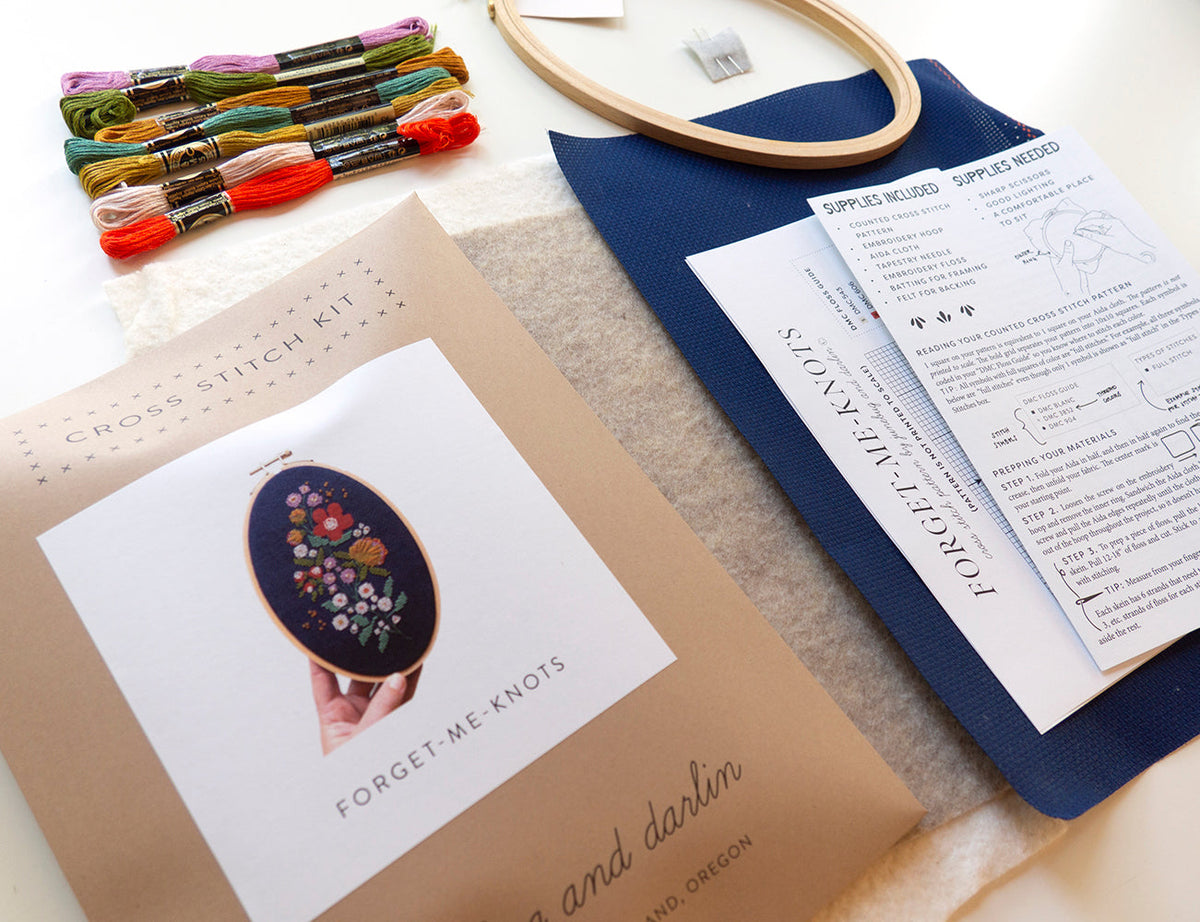 CROSS STITCH KIT
FORGET-ME-KNOTS
and darlin
OREGON
SUPPLIES INCLUDED
• COUNTED CROSS STITCH
PATTERN
• EMBROIDERY HOOP
• AIDA CLOTH
• TAPESTRY NEEDLE
• EMBROIDERY FLOSS
• BATTING FOR FRAMING
• FELT FOR BACKING
SUPPLIES NEEDED
• SHARP SCISSORS
• GOOD LIGHTING
• A COMFORTABLE PLACE
TO SIT
READING YOUR COUNTED CROSS STITCH PATTERN
1 square on your pattern is equivalent to 1 square on your Aida cloth. The pattern is not
printed to scale. The bold grid separates your pattern into 10x10 squares. Each symbol is
coded in your "DMC Floss Guide" so you know where to stitch each color.
TIP: All symbols with full squares of color are "full stitches". For example, all three symbols
below are "full stitches" even though only 1 symbol is shown as "full stitch" in the Types
Stitches box.
DMC FLOSS GUIDE
DMC BLANC
DMC 3852
DMC 904
STITCH
SYMBOLS
THREAD
COLORS
TYPES OF STITCHES
FULL STITCH
PREPPING YOUR MATERIALS
STEP 1. Fold your Aida in half, and then in half again to find the
crease, then unfold your fabric. The center mark is
your starting point.
STEP 2. Loosen the screw on the embroidery
hoop and remove the inner ring. Sandwich the Aida cloth
screw and pull the Aida edges repeatedly until the cloth
out of the hoop throughout the project, so it doesn't
STEP 3. To prep a piece of floss, pull the
skein. Pull 12-18" of floss and cut. Stick to
with stitching.
TIP: Measure from your finger
Each skein has 6 strands that need
3, etc. strands of floss for each
aside the rest.
FORGET-ME-KNOTS
cross stitch pattern by
and darlin ©
(PATTERN IS NOT PRINTED TO SCALE)
DMC FLOSS GUIDE
DMC 543
DMC 606